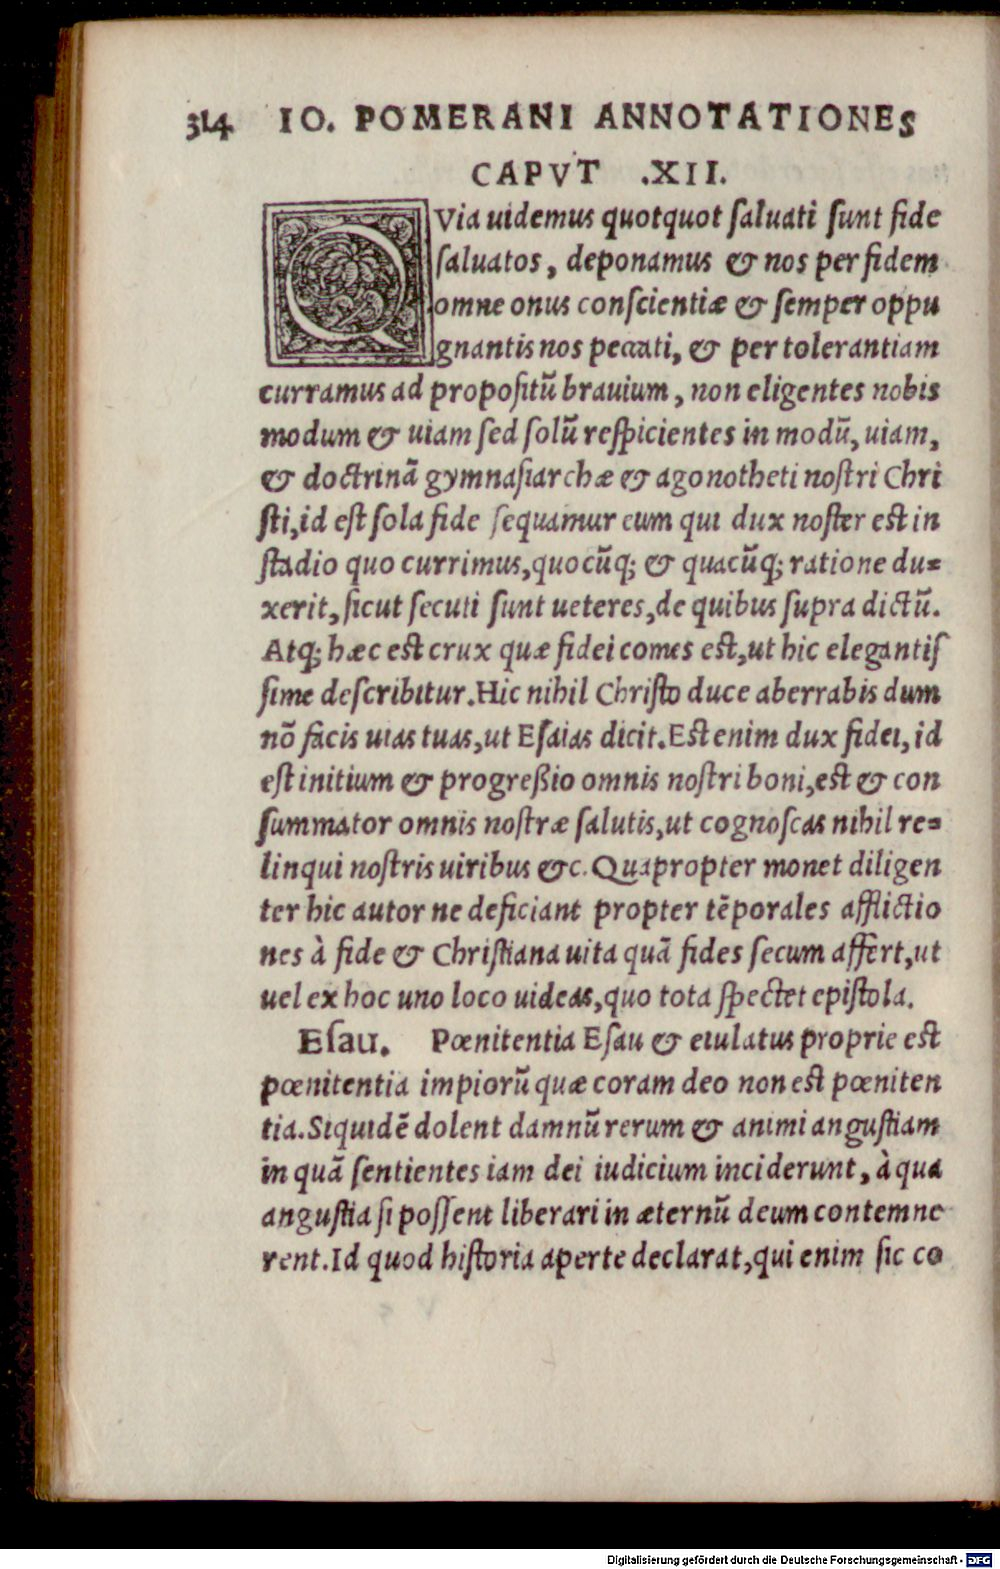 314 IO. POMERANI ANNOTATIONES
CAPVT .XII.
QVia uidemus quotquot ſaluati ſunt fide
ſaluatos, deponamus & nos per fidem
omne onus conſcientiæ & ſemper oppu
gnantis nos peccati, & per tolerantiam
curramus ad propoſitū brauium, non eligentes nobis
modum & uiam ſed ſolū reſpicientes in modū, uiam,
& doctrinā gymnaſiarchæ & agonotheti noſtri Chri
ſti, id eſt ſola fide ſequamur eum qui dux noſter eſt in
ſtadio quo currimus, quocūq; & quacūq; ratione du⸗
xerit, ſicut ſecuti ſunt ueteres, de quibus ſupra dictū.
Atq; hæc eſt crux quæ fidei comes eſt, ut hic elegantiſ
ſime deſcribitur. Hic nihil Chriſto duce aberrabis dum
nō facis uias tuas, ut Eſaias dicit. Eſt enim dux fidei, id
eſt initium & progreßio omnis noſtri boni, eſt & con
ſummator omnis noſtræ ſalutis, ut cognoſcas nihil re⸗
linqui noſtris uiribus &c. Quapropter monet diligen
ter hic autor ne deficiant propter tēporales afflictio
nes à fide & Chriſtiana uita quā fides ſecum affert, ut
uel ex hoc uno loco uideas, quo tota ſpectet epiſtola.
Eſau. Pœnitentia Eſau & eiulatus proprie eſt
pœnitentia impiorū quæ coram deo non eſt pœniten
tia. Siquidē dolent damnū rerum & animi anguſtiam
in quā ſentientes iam dei iudicium inciderunt, à qua
anguſtia ſi poſſent liberari in æternū deum contemne
rent. Id quod hiſtoria aperte declarat, qui enim ſic co
Digitalisierung gefördert durch die Deutsche Forschungsgemeinschaft - DFG